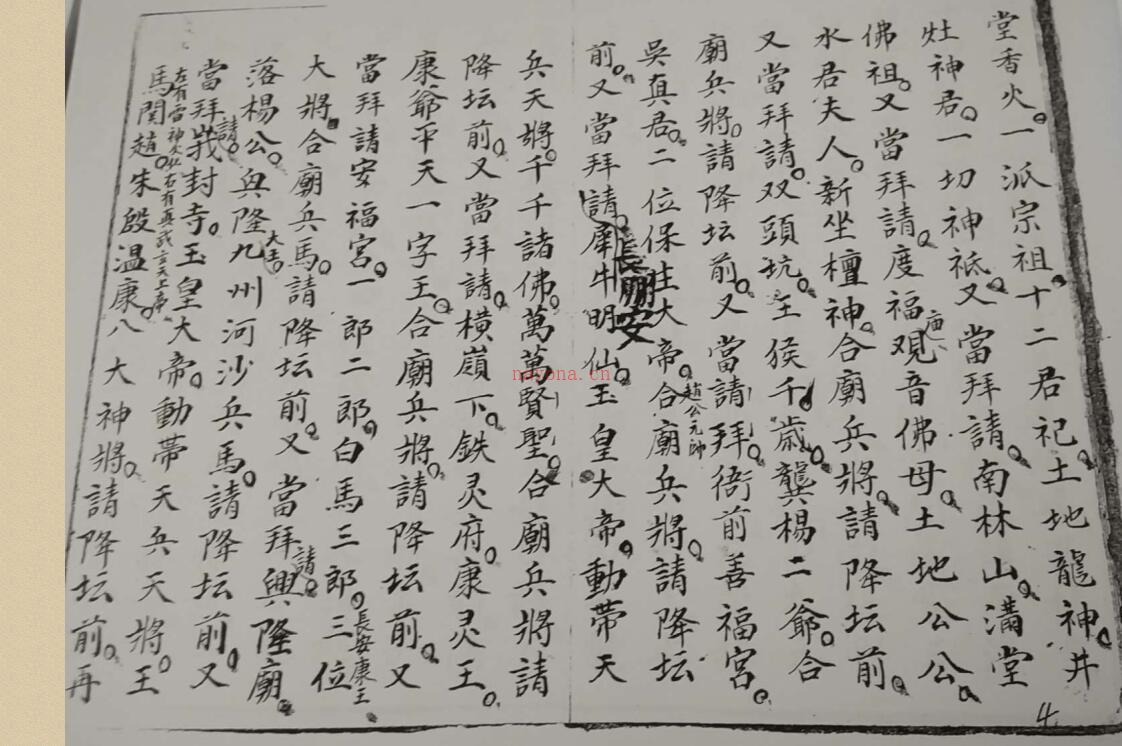 堂香火。一派宗祖。十二君祀。土地龍神。井
灶神君。一切神祗。又當拜請。南林山。滿堂
佛祖。又當拜請。度福观音佛母。土地公公。
水君夫人。新坐檀神。合廟兵將。請降坛前。
又當拜請。双頭坑。王侯千歲。龔楊二爺。合
廟兵將。請降坛前。又當請拜。衙前善福宮。
吳真君。二位保生大帝。趙公元帥合廟兵將。請降坛
前。又當拜請。牛明仙。玉皇大帝。動帶天
長朋安
兵天將。千千諸佛。萬萬賢聖。合廟兵將請
降坛前。又當拜請。橫嶺下。鉄灵府。康灵王。
康爺平天一字王。合廟兵將。請降坛前。又
當拜請安福宮。一郎二郎。白馬三郎。三位長安康王。
大將。合廟兵馬。請降坛前。又當拜請。興隆廟。
落楊公。與隆大王。九州河沙兵馬。請降坛前。又
當拜請。峩封寺。玉皇大帝。動帶天兵天將。王
馬関趙。朱殷温康。八大神將。請降坛前。再
左有雷神火 右有真武玄天上帝
4
nayona.cn